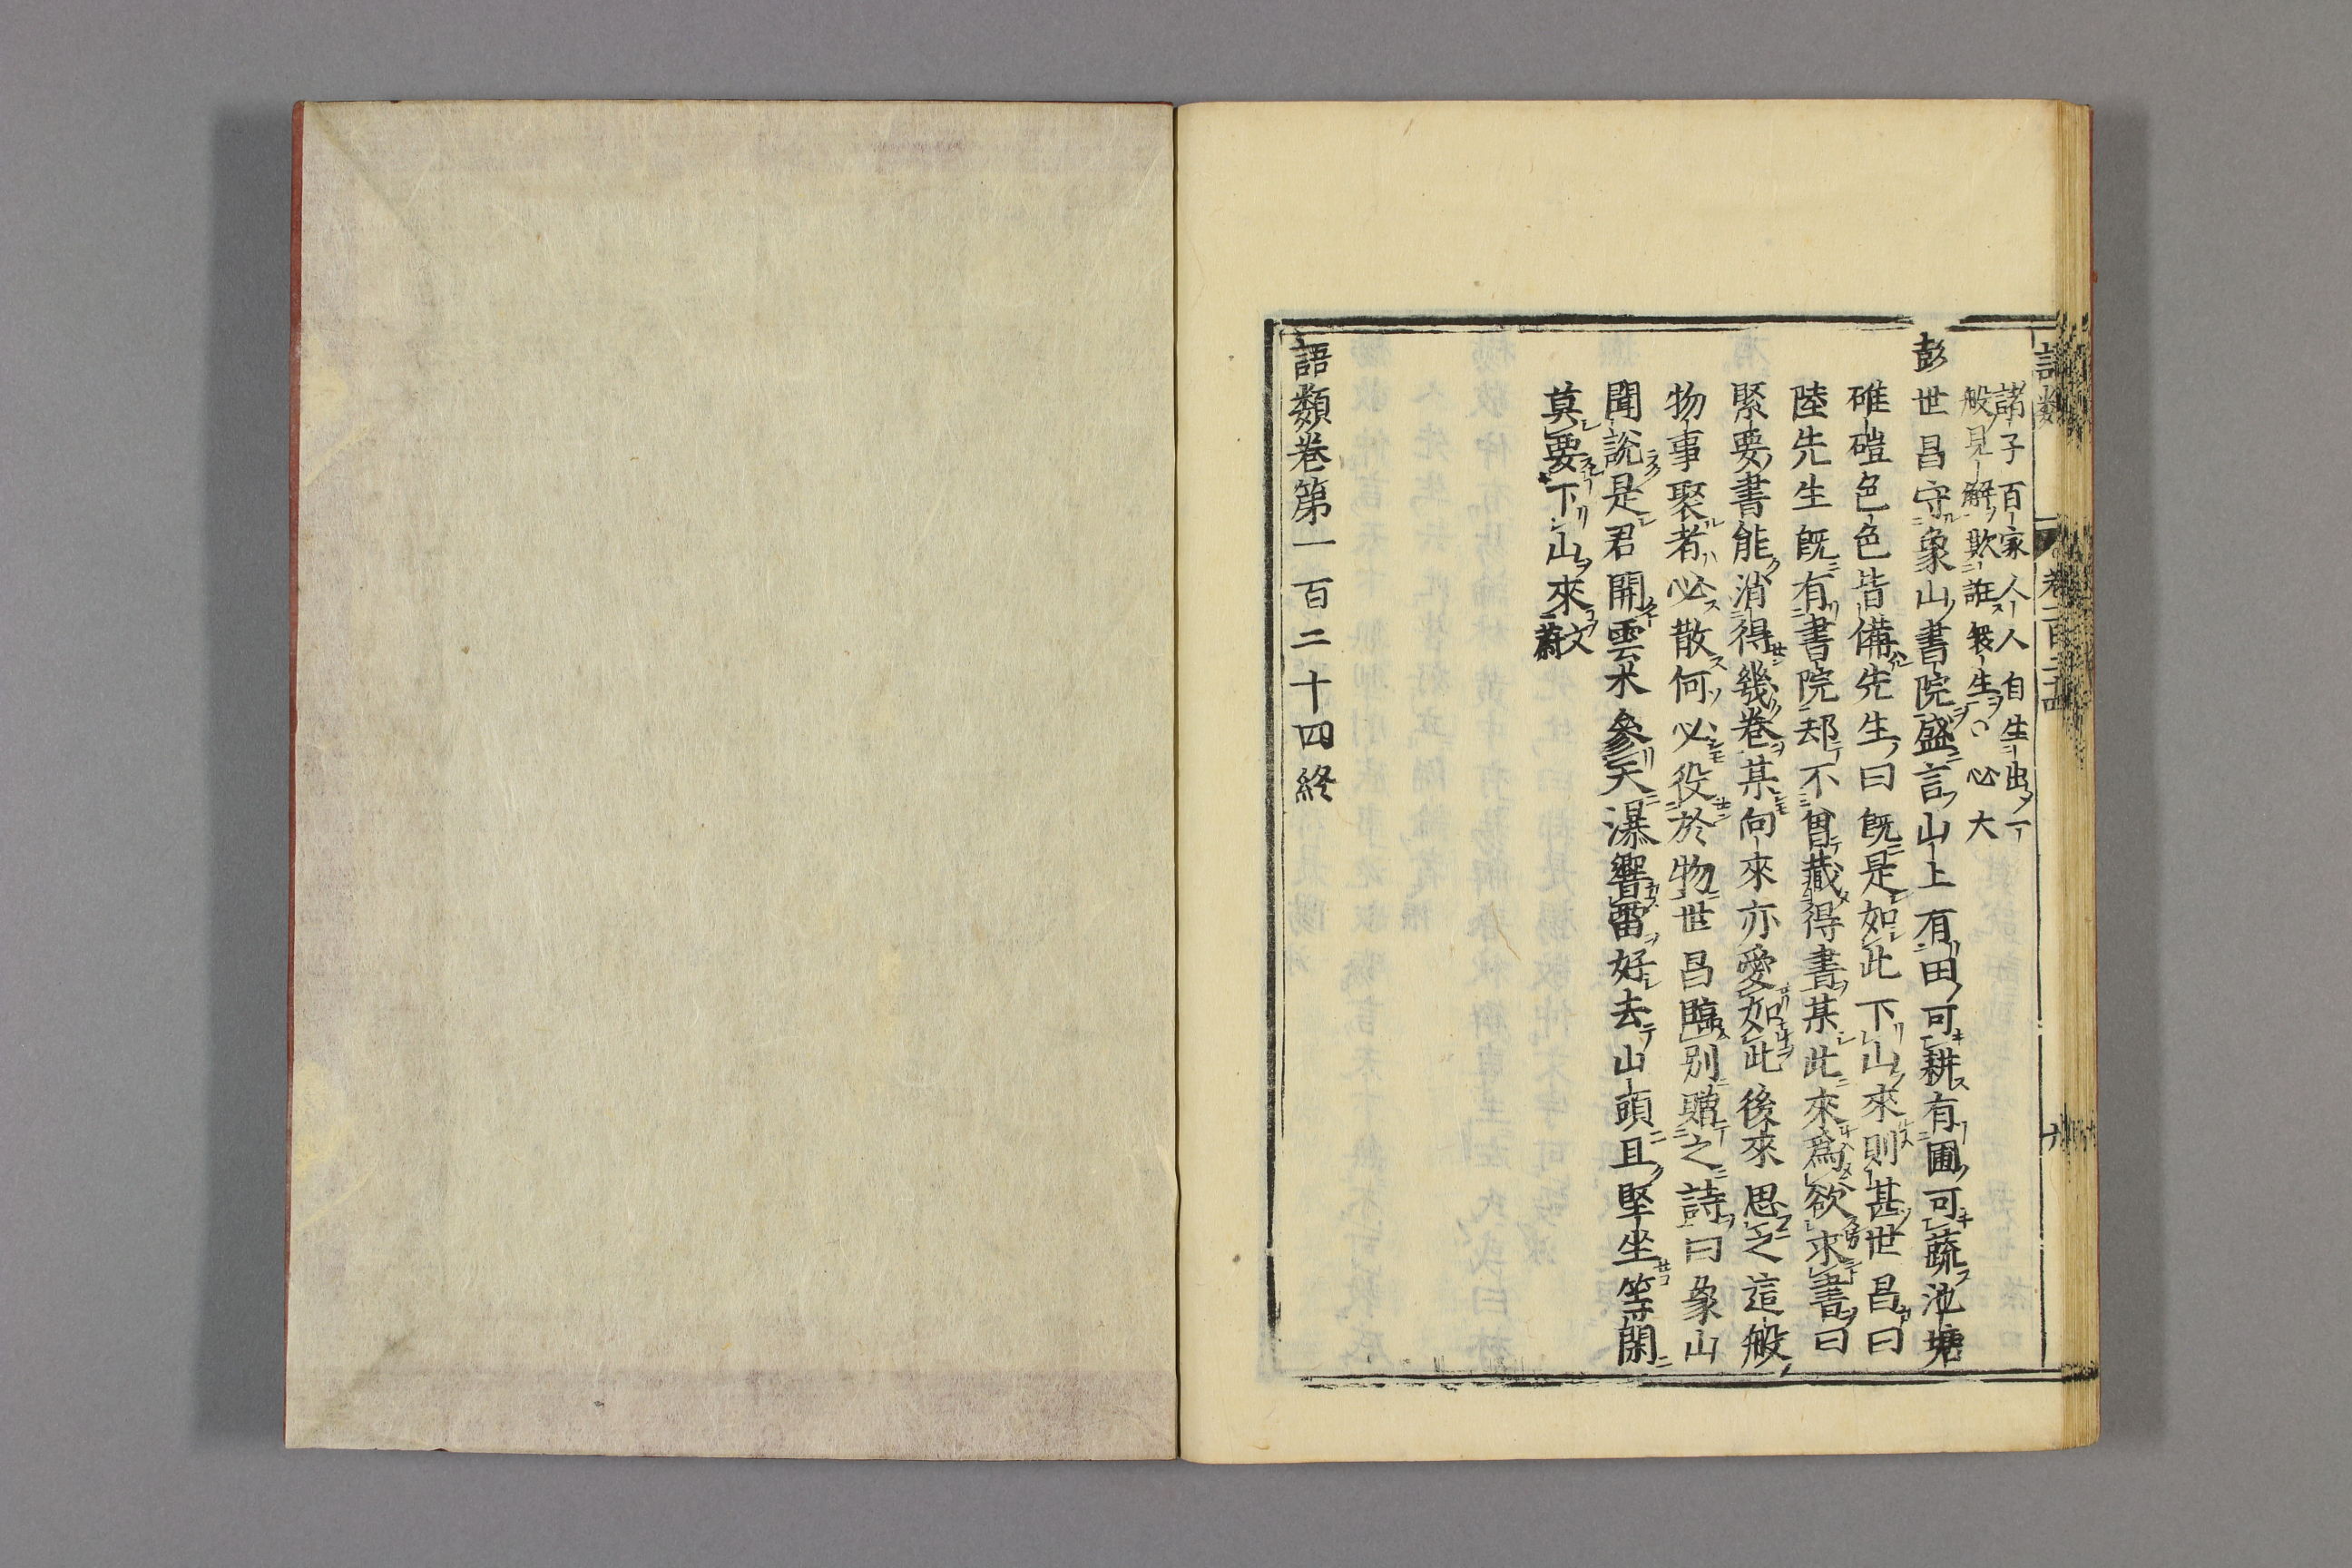 諸子百家人人自生出一
般見解欺誑衆生心大
彭世昌守象山書院盛言山上有田可耕有圃可蔬池塘
碓磑色色皆備先生曰既是如此下山來則甚世昌曰
陸先生既有書院却不曾藏得書某此來爲欲求書曰
緊要書能消得幾卷某向來亦愛如此後來思之這般
物事聚者必散何必役於物世昌臨別贈之詩曰象山
聞說是君開雲木參天瀑響雷好去山頭且堅坐等閑
莫要下山來文
蔚
語類卷第一百二十四終